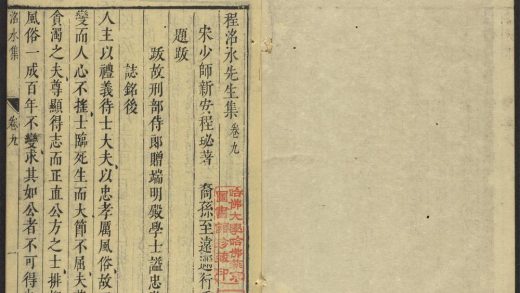 程洺水先生集卷九
宋少師新安程珌著 裔孫至遠遵行
題跋
跋故刑部侍郎贈端明殿學士謚忠
誌銘後
人主以禮義待士大夫以忠孝厲風俗故
變而人心不搖士臨死生而大節不屈夫
貪濁之夫尊顯得志而正直公方之士排
風俗一成百年不變求其如公者不可得
洺水集 卷九 一
哈佛大學哈佛
圖書館珍藏印